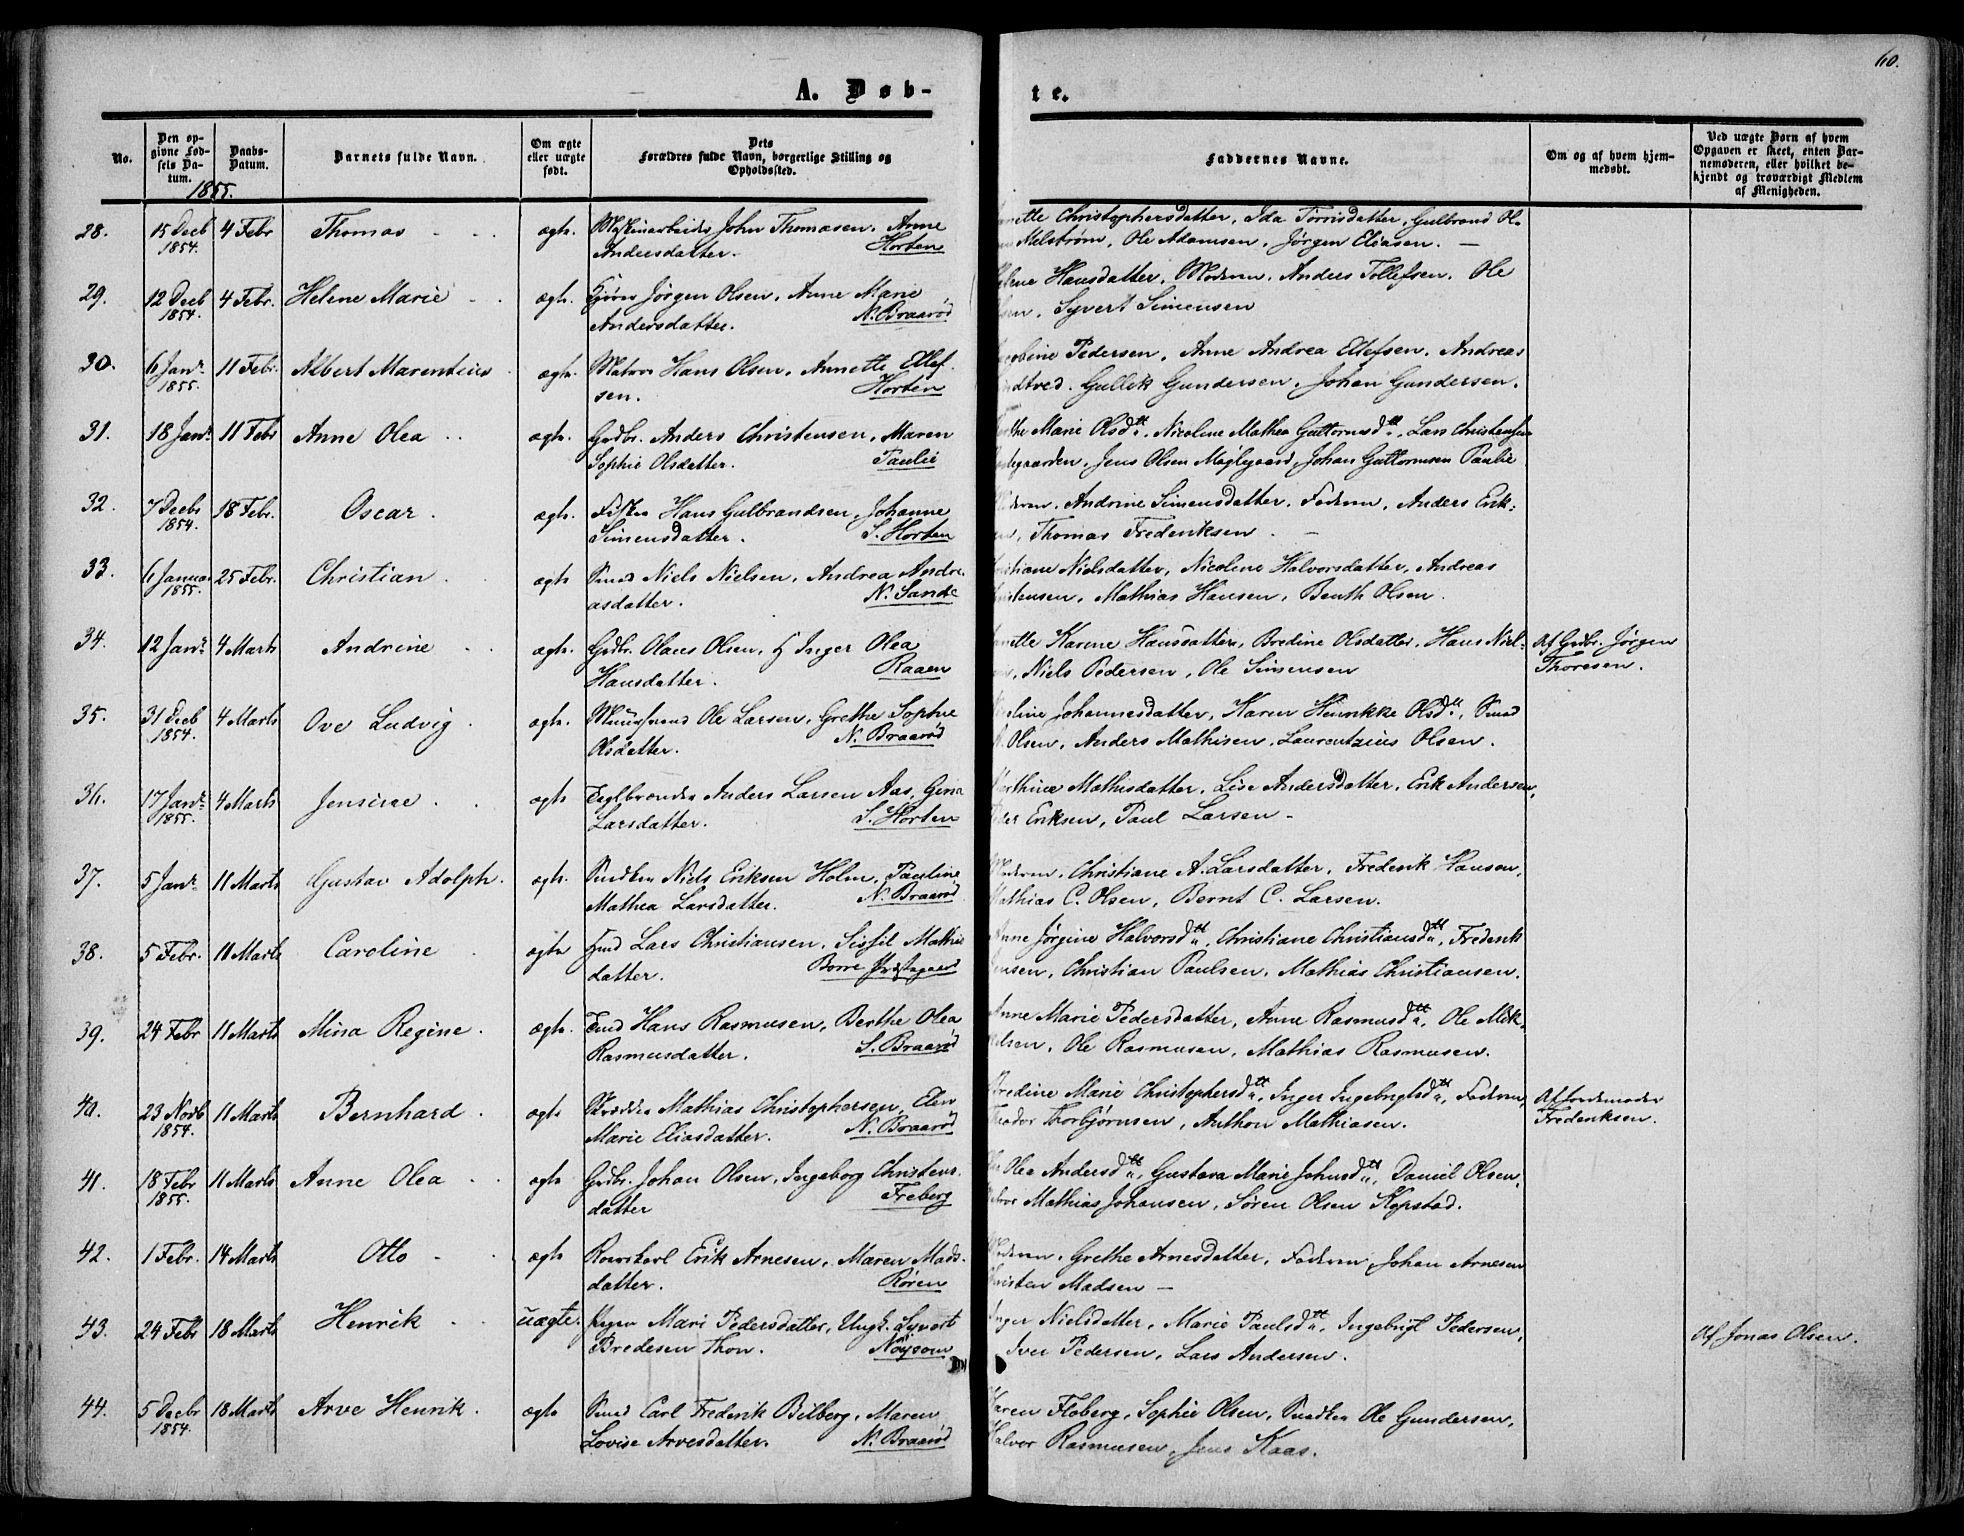 60.
A. Døb-
te.
No.
Den op-
givne Fød-
sels Da-
tum.
Daabs-
Datum.
Barnets fulde Navn.
Om ægte
eller uægte
født.
Dets
Forældres fulde Navn, borgerlige Stilling og
Opholdssted.
Faddernes Navne.
Om og af hvem hjem-
medøbt.
Ved uægte Børn af hvem
Opgaven er skeet, enten Bar-
nemoderen, eller hvilket be-
kjendt og troværdigt Medlem
af Menigheden.
1855.
28. 15 Decb 4 Febr Thomas ægte. John Thomasen, Anne
1854. Andersdatter. Horten
Christophersdatter, Ida Torrisdatter, Gulbrand Ol-
Melstrøm, Ole Adamsen, Jørgen Eliasen.
29. 12 Decb 4 Febr. Helene Marie ægte. Jørgen Olsen, Anne Marie
1854. Andersdatter. N. Braarød
Hansdatter, Moderen, Anders Tollefsen, Ole
Syvert Simensen
30. 6 Janr. 11 Febr. Albert Marentius ægte. Matros Hans Olsen, Annette Ellef-
1855. sen. Horten
Pedersen, Anne Andrea Ellefsen, Andreas
Gullik Gundersen, Johan Gundersen.
31. 18 Janr. 11 Febr Anne Olea ægte. Grdbr. Anders Christensen, Maren
Sophie Olsdatter. Paulie
Marie Olsdtt., Nicoline Mathea Guttormsdtt., Lars Christensen
Jens Olsen Møglegaard, Johan Guttormsen Paulie
32. 7 Decbr 18 Febr. Oscar. ægte. Fisker Hans Gulbrandsen, Johanne
1854. Simensdatter. S. Horten
Andrine Simensdatter, Faderen, Anders Erik-
Thomas Frederiksen
33. 6 Januar 25 Febr. Christian ægte Smed Niels Nielsen, Andrea Andre-
1855. asdatter. N. Sande
Nielsdatter, Nicoline Halvorsdatter, Andreas
Mathias Hansen, Benth Olsen.
34. 12 Janr. 4 Marts Andrine ægte. Grdbr. Olaus Olsen, Inger Olea
Hansdatter. Raaen
Karine Hansdatter, Bredine Olsdatter, Hans Niel-
Niels Pedersen, Ole Simensen
Af Grdbr. Jørgen
Thoresen.
35. 31 Decb 4 Marts Ove Ludvig ægte. Ole Larsen, Grethe Sophie
1854. Olsdatter. N. Braarød
Johannesdatter, Karen Henrikke Olsdtt., Smed
Olsen, Anders Mathisen, Laurentzius Olsen.
36. 17 Janr. 4 Marts Jensine. ægte Teglbrænder Anders Larsen Aas, Gina
1855. Larsdatter. S. Horten
Mathisdatter, Lise Andersdatter, Erik Andersen,
Eriksen, Paul Larsen
37. 5 Janr. 11 Marts Gustav Adolph. ægte. Snedker Niels Eriksen Holm, Pauline
Mathea Larsdatter. N. Braarød
Moderen, Christiane A. Larsdatter, Frederik Hansen,
Mathias C. Olsen, Bernt C. Larsen.
38. 5 Febr. 11 Marts Caroline ægte Lars Christiansen, Sissil Mathis
datter. Borre Præstegaard
Anne Jørgine Halvorsdtt., Christiane Christiansdtt., Frederik
Christian Paulsen, Mathias Christiansen.
39. 24 Febr 11 Marts Mina Regine. ægte. Hans Rasmusen, Berthe Olea
Rasmusdatter. S. Braarød
Anne Marie Pedersdatter, Anne Rasmusdtt., Ole Mik-
Ole Rasmusen, Mathias Rasmusen.
40. 23 Novb 11 Marts Bernhard. ægte Skrædder Mathias Christophersen, Elen
1854. Marie Eliasdatter. N. Braarød
Bredine Marie Christophersdtt., Inger Ingebrigtsdtt., Faderen,
Theodor Thorbjørnsen, Anthon Mathiasen.
Af Jordemoder
Frederiksen.
41. 18 Febr 11 Marts Anne Olea ægte Grdbr. Johan Olsen, Ingeborg Christens-
1855. datter Freberg
Olea Andersdtt., Gustava Marie Johnsdtt., Daniel Olsen,
Mathias Johansen, Søren Olsen Kopstad.
42. 1 Febr. 14 Marts Otto ægte Rorskarl Erik Arnesen, Maren Mads-
datter. Røren
Moderen, Grethe Arnesdatter, Faderen, Johan Arnesen
Christen Madsen
43. 24 Febr 18 Marts Henrik uægte. Pigen Mari Pedersdatter, Ungk. Syvert
Bredesen Thon.
Inger Nielsdatter, Marie Paulsdtt., Ingebrigt Pedersen,
Iver Pedersen, Lars Andersen.
Af Jonas Olsen.
44. 5 Decbr 18 Marts Arve Henrik. ægte Smed Carl Frederik Bilberg, Maren
1854. Lovise Arvesdatter. N. Braarød
Karen Floberg, Sophie Olsen, Snedker Ole Gundersen,
Halvor Rasmusen, Jens Kaas.